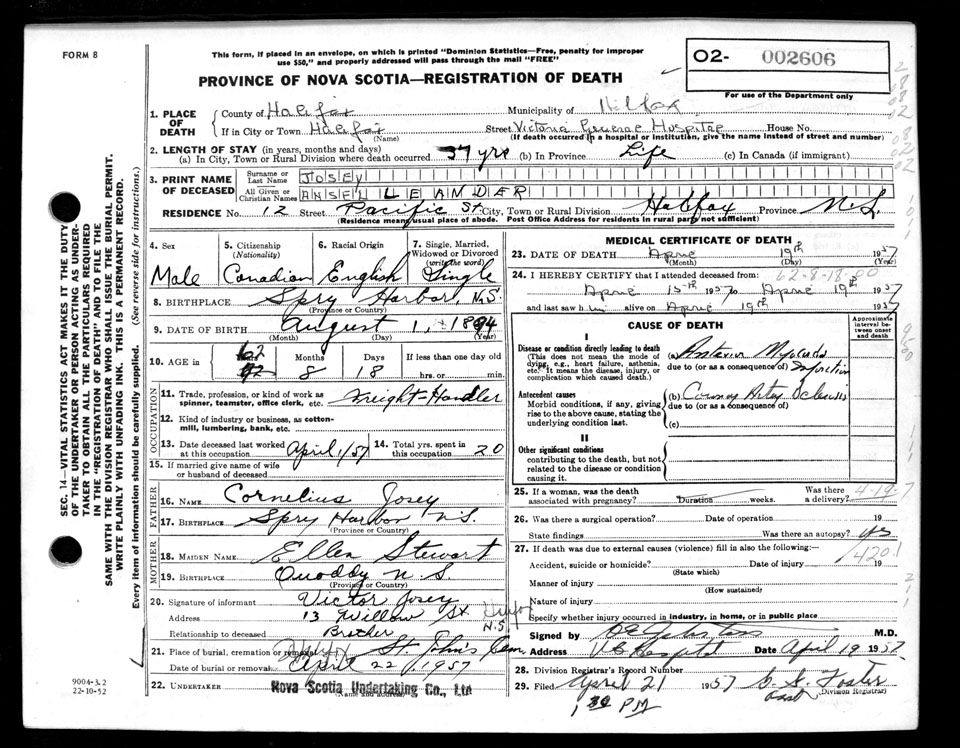 FORM 8
This form, if placed in an envelope, on which is printed "Dominion Statistics—Free, penalty for improper
use $50," and properly addressed will pass through the mail "FREE"
PROVINCE OF NOVA SCOTIA—REGISTRATION OF DEATH
O2- 002606
For use of the Department only
1. PLACE OF DEATH
County of Halifax Municipality of Halifax
If in City or Town Halifax Street Victoria General Hospital House No.
(Name) (If death occurred in a hospital or institution, give the name instead of street and number)
2. LENGTH OF STAY (in years, months and days)
(a) In City, Town or Rural Division where death occurred 37 yrs (b) In Province Life (c) In Canada (if immigrant)
3. PRINT NAME OF DECEASED
Surname or Last Name JOSEY
All Given or Christian Names ANSEL LEANDER
RESIDENCE No. 12 Street Pacific St City, Town or Rural Division Halifax Province N.S.
(Residence means usual place of abode. Post Office Address for residents in rural parts not sufficient)
4. Sex Male
5. Citizenship (Nationality) Canadian
6. Racial Origin English
7. Single, Married, Widowed or Divorced (write the word) Single
8. BIRTHPLACE Spry Harbor, N.S.
(Province or Country)
9. DATE OF BIRTH August 1, 1894
(Month) (Day) (Year)
10. AGE in 62 Months 8 Days 18 If less than one day old
hrs. or min.
OCCUPATION
11. Trade, profession, or kind of work as spinner, teamster, office clerk, etc. Freight-Handler
12. Kind of industry or business, as cotton-mill, lumbering, bank, etc.
13. Date deceased last worked at this occupation April 1/57
14. Total yrs. spent in this occupation 20
15. If married give name of wife or husband of deceased
FATHER
16. NAME Cornelius Josey
17. BIRTHPLACE Spry Harbor N.S.
(Province or Country)
MOTHER
18. MAIDEN NAME Ellen Stewart
19. BIRTHPLACE Quoddy N.S.
(Province or Country)
20. Signature of informant Victor Josey
Address 13 Willow St Halifax N.S.
Relationship to deceased Brother
21. Place of burial, cremation or removal St John's Cem
Date of burial or removal April 22 1957
22. UNDERTAKER Nova Scotia Undertaking Co., Ltd
MEDICAL CERTIFICATE OF DEATH
23. DATE OF DEATH April 19th 1957
(Month) (Day) (Year)
24. I HEREBY CERTIFY that I attended deceased from:
62-8-18-00
April 15th 1957 to April 19th 1957
and last saw him alive on April 19th 1957
CAUSE OF DEATH
Approximate interval between onset and death
I
Disease or condition directly leading to death
(This does not mean the mode of dying, e.g., heart failure, asthenia, etc. It means the disease, injury, or complication which caused death.)
(a) Anterior Myocardial Infarction
due to (or as a consequence of)
Antecedent causes
Morbid conditions, if any, giving rise to the above cause, stating the underlying condition last.
(b) Coronary Artery Sclerosis
due to (or as a consequence of)
(c)
II
Other significant conditions
contributing to the death, but not related to the disease or condition causing it.
25. If a woman, was the death associated with pregnancy? Duration weeks. Was there a delivery?
4-19-7
26. Was there a surgical operation? Date of operation 19
State findings Was there an autopsy? yes
27. If death was due to external causes (violence) fill in also the following:—
Accident, suicide or homicide? Date of injury 19
420.1
(State which)
Manner of injury
(How sustained)
Nature of injury
Specify whether injury occurred in industry, in home, or in public place
Signed by M.D.
Address V G Hospital Date April 19 1957
28. Division Registrar's Record Number
29. Filed April 21 1957 C. S. Foster
(Division Registrar)
1 30 PM
SEC. 14—VITAL STATISTICS ACT MAKES IT THE DUTY
OF THE UNDERTAKER OR PERSON ACTING AS UNDER-
TAKER TO OBTAIN ALL THE PARTICULARS REQUIRED
IN THE "REGISTRATION OF DEATH" AND TO FILE THE
SAME WITH THE DIVISION REGISTRAR WHO SHALL ISSUE THE BURIAL PERMIT.
WRITE PLAINLY WITH UNFADING INK. THIS IS A PERMANENT RECORD.
Every item of information should be carefully supplied. (See reverse side for instructions.)
9004-3.2
22-10-52